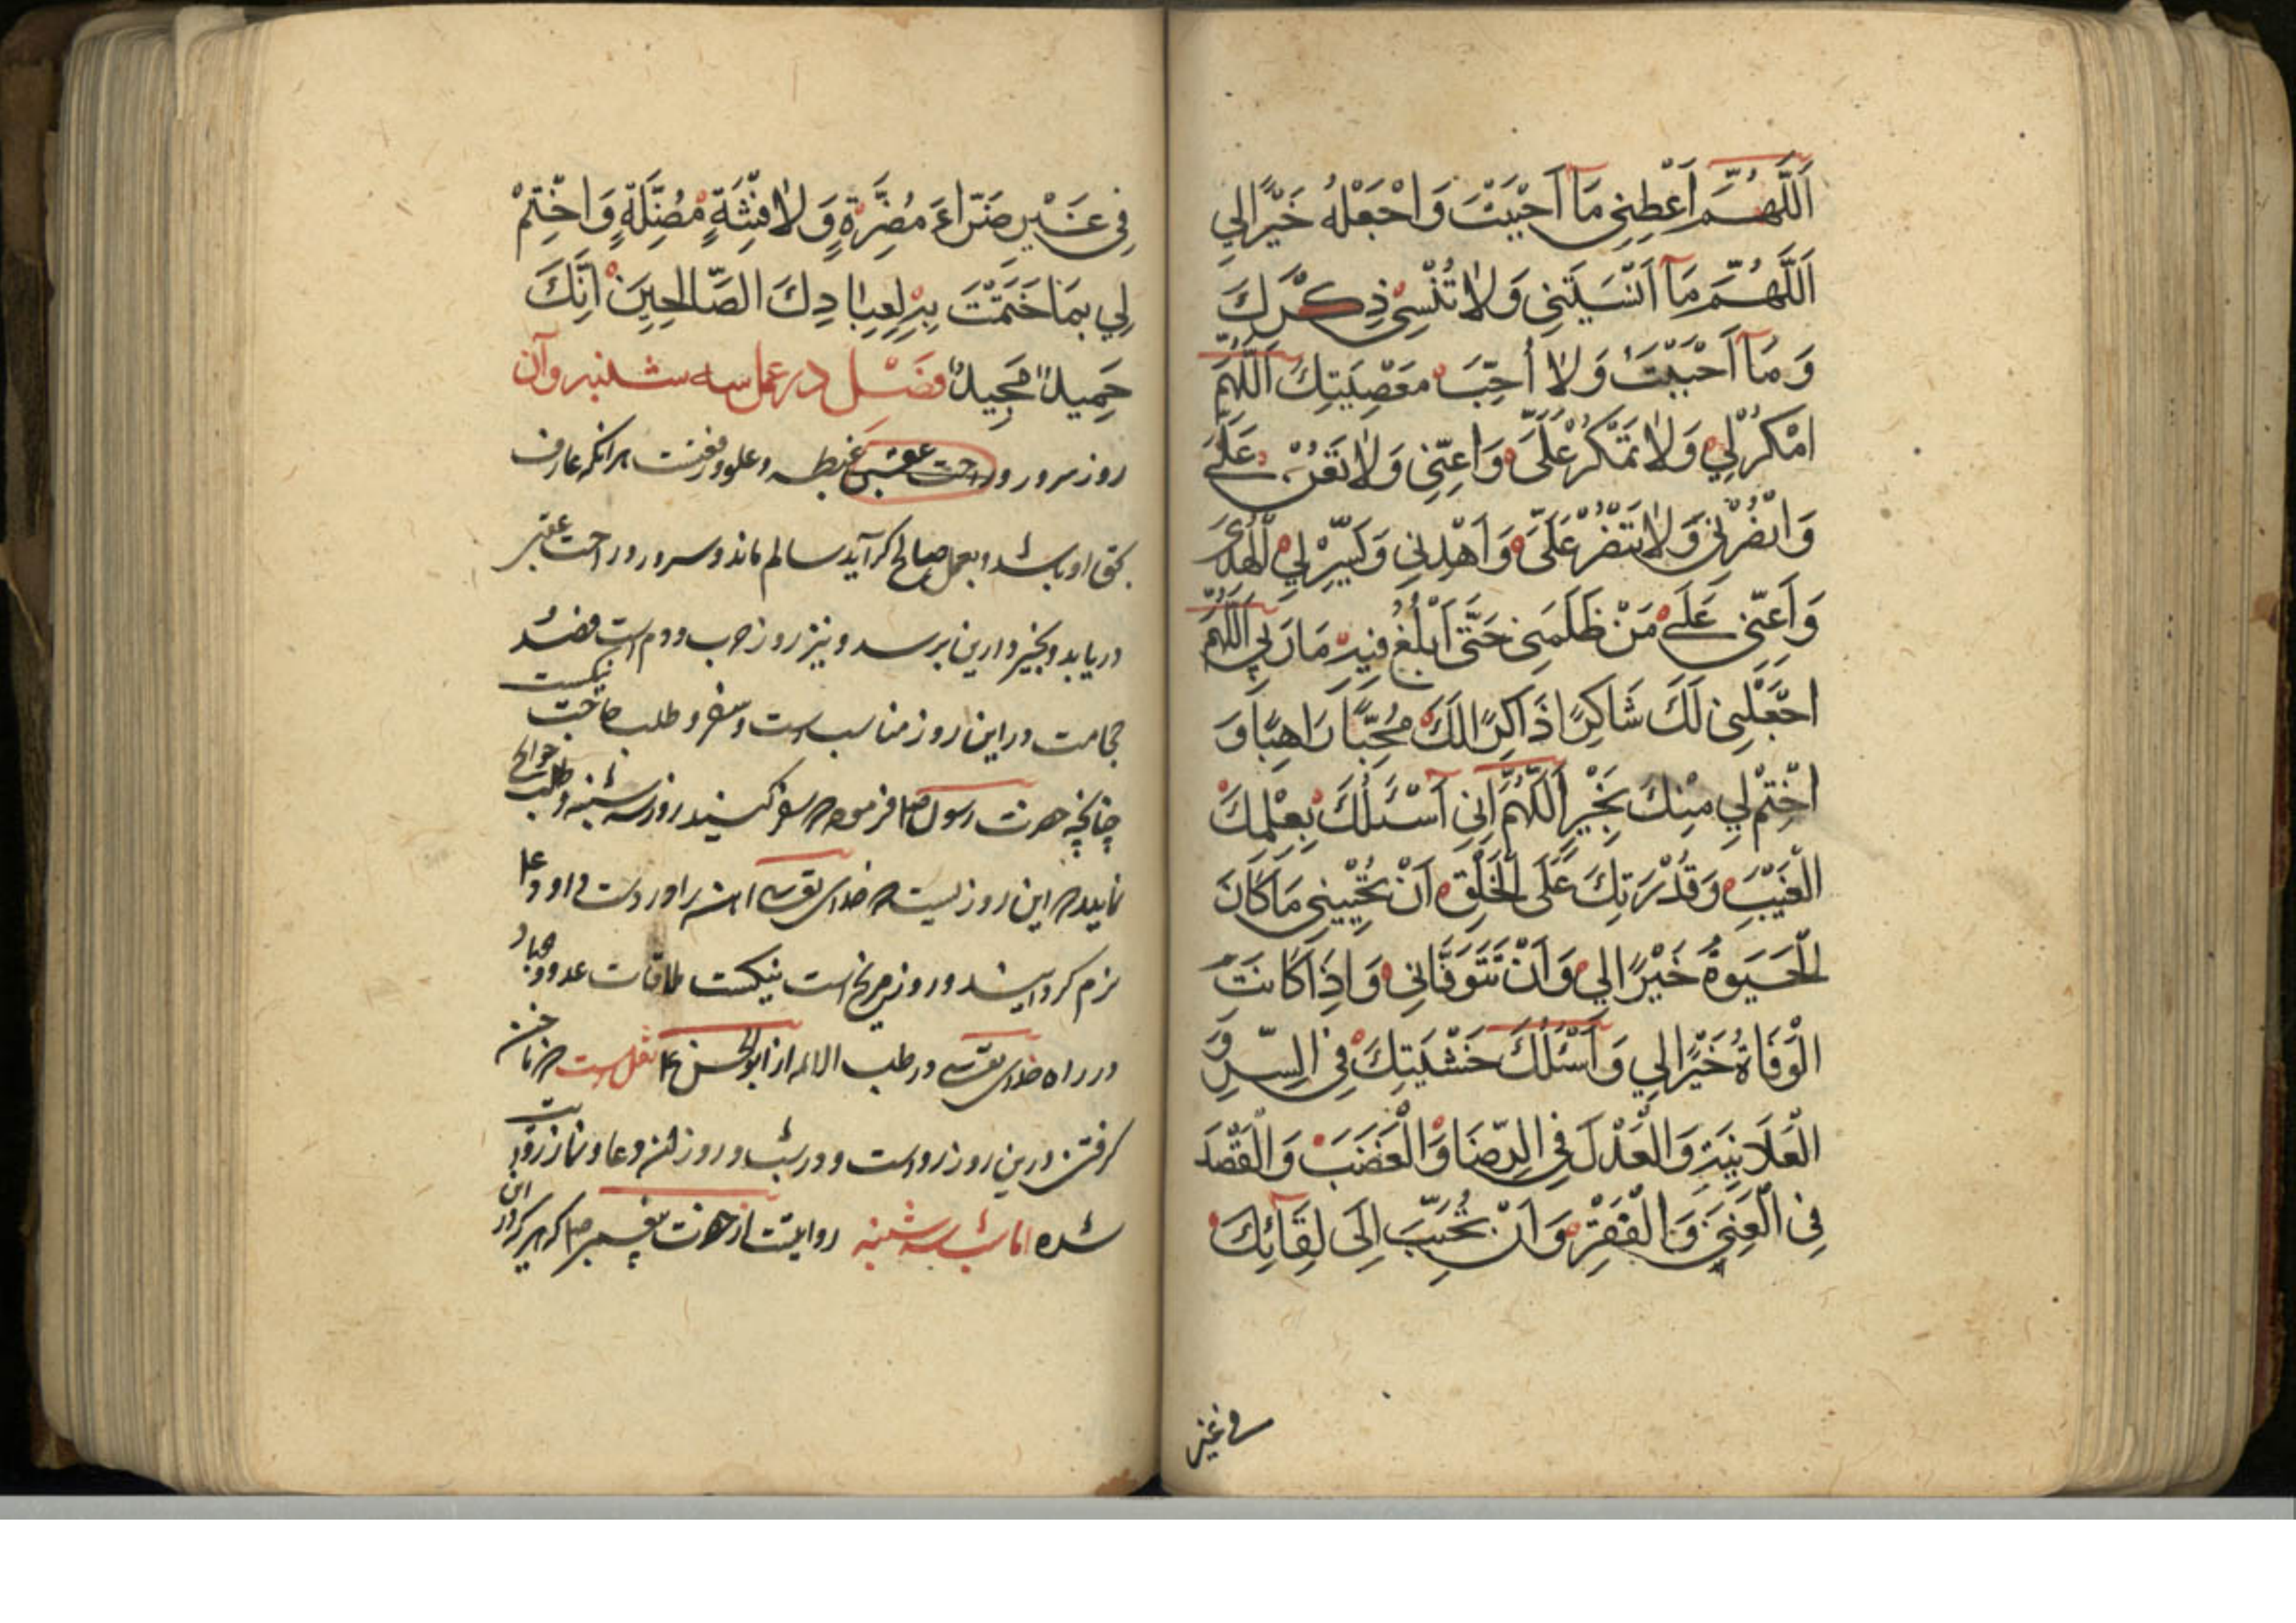 اَللّٰهُمَّ اَعْطِنِي مَآ اَحْبَبْتَ وَاجْعَلْهُ خَيْرًا لِي
اَللّٰهُمَّ مَآ اَنْسَيْتَنِي وَلَا تُنْسِنِي ذِكْرَكَ
وَمَآ اَحْبَبْتَ وَلَا اُحِبَّ مَعْصِيَتِكَ اَللّٰهُمَّ
امْكُرْ لِي وَلَا تَمْكُرْ عَلَيَّ وَاَعِنِّي وَلَا تُعِنْ عَلَيَّ
وَانْصُرْنِي وَلَا تَنْصُرْ عَلَيَّ وَاهْدِنِي وَيَسِّرْ لِي الْهُدَى
وَاَعِنِّي عَلَى مَنْ ظَلَمَنِي حَتَّى اَبْلُغَ فِيهِ مَارَبِي اَللّٰهُمَّ
اجْعَلْنِي لَكَ شَاكِرًا ذَاكِرًا لَكَ مُحِبًّا رَاهِبًا وَ
اخْتِمْ لِي مِنْكَ بِخَيْرٍ اَللّٰهُمَّ اِنِّي اَسْئَلُكَ بِعِلْمِكَ
الْغَيْبَ وَقُدْرَتِكَ عَلَى الْخَلْقِ اَنْ تُحْيِيَنِي مَا كَانَ
الْحَيٰوةُ خَيْرًا لِي وَاَنْ تَتَوَفَّانِي وَاِذَا كَانَتْ
الْوَفَاةُ خَيْرًا لِي وَاَسْئَلُكَ خَشْيَتِكَ فِي السِّرِّ وَ
الْعَلَانِيَةِ وَالْعَدْلَ فِي الرِّضَا وَالْغَضَبِ وَالْقَصْدَ
فِي الْغِنَى وَالْفَقْرِ وَاَنْ تُحَبِّبَ اِلَى لِقَائِكَ
في غير
فِي غَيْرِ ضَرَّاءَ مُضِرَّةٍ وَلَا فِتْنَةٍ مُضِلَّةٍ وَاخْتِمْ
لِي بِمَا خَتَمْتَ بِهِ لِعِبَادِكَ الصَّالِحِينَ اِنَّكَ
حَمِيدٌ مَجِيدٌ فصل در عمل سه شنبه وآن
روز سرور و راحت عقبی غبطه وعلو ورفعت هرانکه عارف
بحق او باشد وبعمل صالح گراید سالم ماند وسرور و راحت عقبی
دریابد وبخیر دارین برسد ونیز روز حرب ودم است فصد
حجامت دراین روز مناسب است وسفر و طلب حاجت نیکست
چنانچه حضرت رسول ص فرموده که سفر کنید روز سه شنبه وطلب حوایج
نمایید که این روزیست که خدای تعالی آهن را در دست داود ع
نرم گردانید و روز مریخ است نیکست ملاقات عدو وجهاد
در راه خدای تعالی ودر طب الائمه از ابوالحسن ع نقلست که ناخن
گرفتن درین روز رواست ودر شب و روز این دعا ونماز روایت
شده اما شب سه شنبه روایتست از حضرت پیغمبر ص که هرکه در این